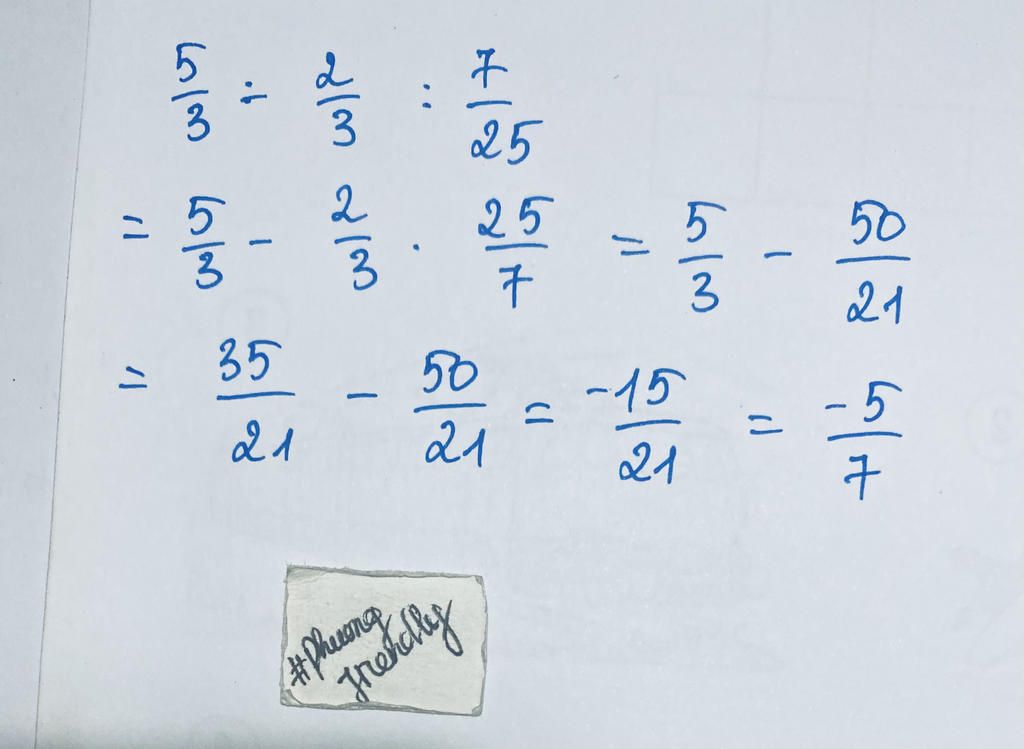 5/3 ÷ 2/3 : 7/25
= 5/3 - 2/3 . 25/7 = 5/3 - 50/21
= 35/21 - 50/21 = -15/21 = -5/7
#Phuong
friendly